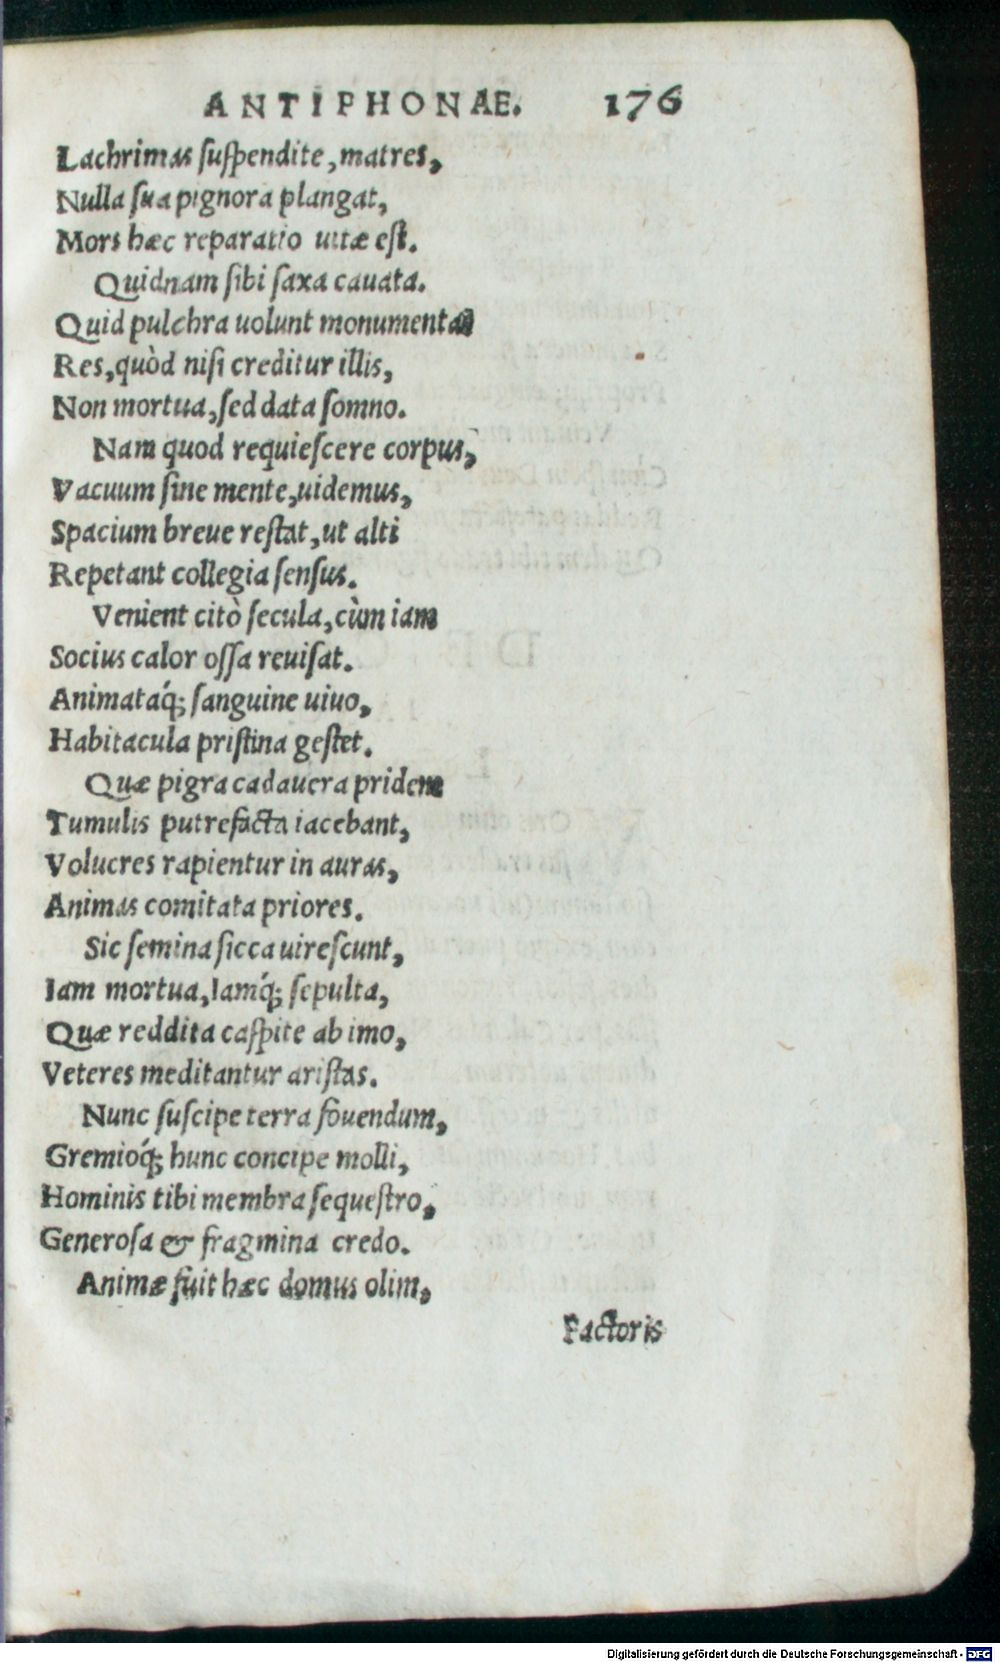 ANTIPHONAE. 176
Lachrimas suspendite, matres,
Nulla sua pignora plangat,
Mors hæc reparatio uitæ est.
Quidnam sibi saxa cauata.
Quid pulchra uolunt monumenta
Res, quòd nisi creditur illis,
Non mortua, sed data somno.
Nam quod requiescere corpus,
Vacuum sine mente, uidemus,
Spacium breue restat, ut alti
Repetant collegia sensus.
Venient citò secula, cùm iam
Socius calor ossa reuisat.
Animataq́; sanguine uiuo,
Habitacula pristina gestet.
Quæ pigra cadauera pridem
Tumulis putrefacta iacebant,
Volucres rapientur in auras,
Animas comitata priores.
Sic semina sicca uirescunt,
Iam mortua, Iamq́; sepulta,
Quæ reddita caspite ab imo,
Veteres meditantur aristas.
Nunc suscipe terra fouendum,
Gremioq́; hunc concipe molli,
Hominis tibi membra sequestro,
Generosa & fragmina credo.
Animæ fuit hæc domus olim,
Factoris
Digitalisierung gefördert durch die Deutsche Forschungsgemeinschaft - DFG